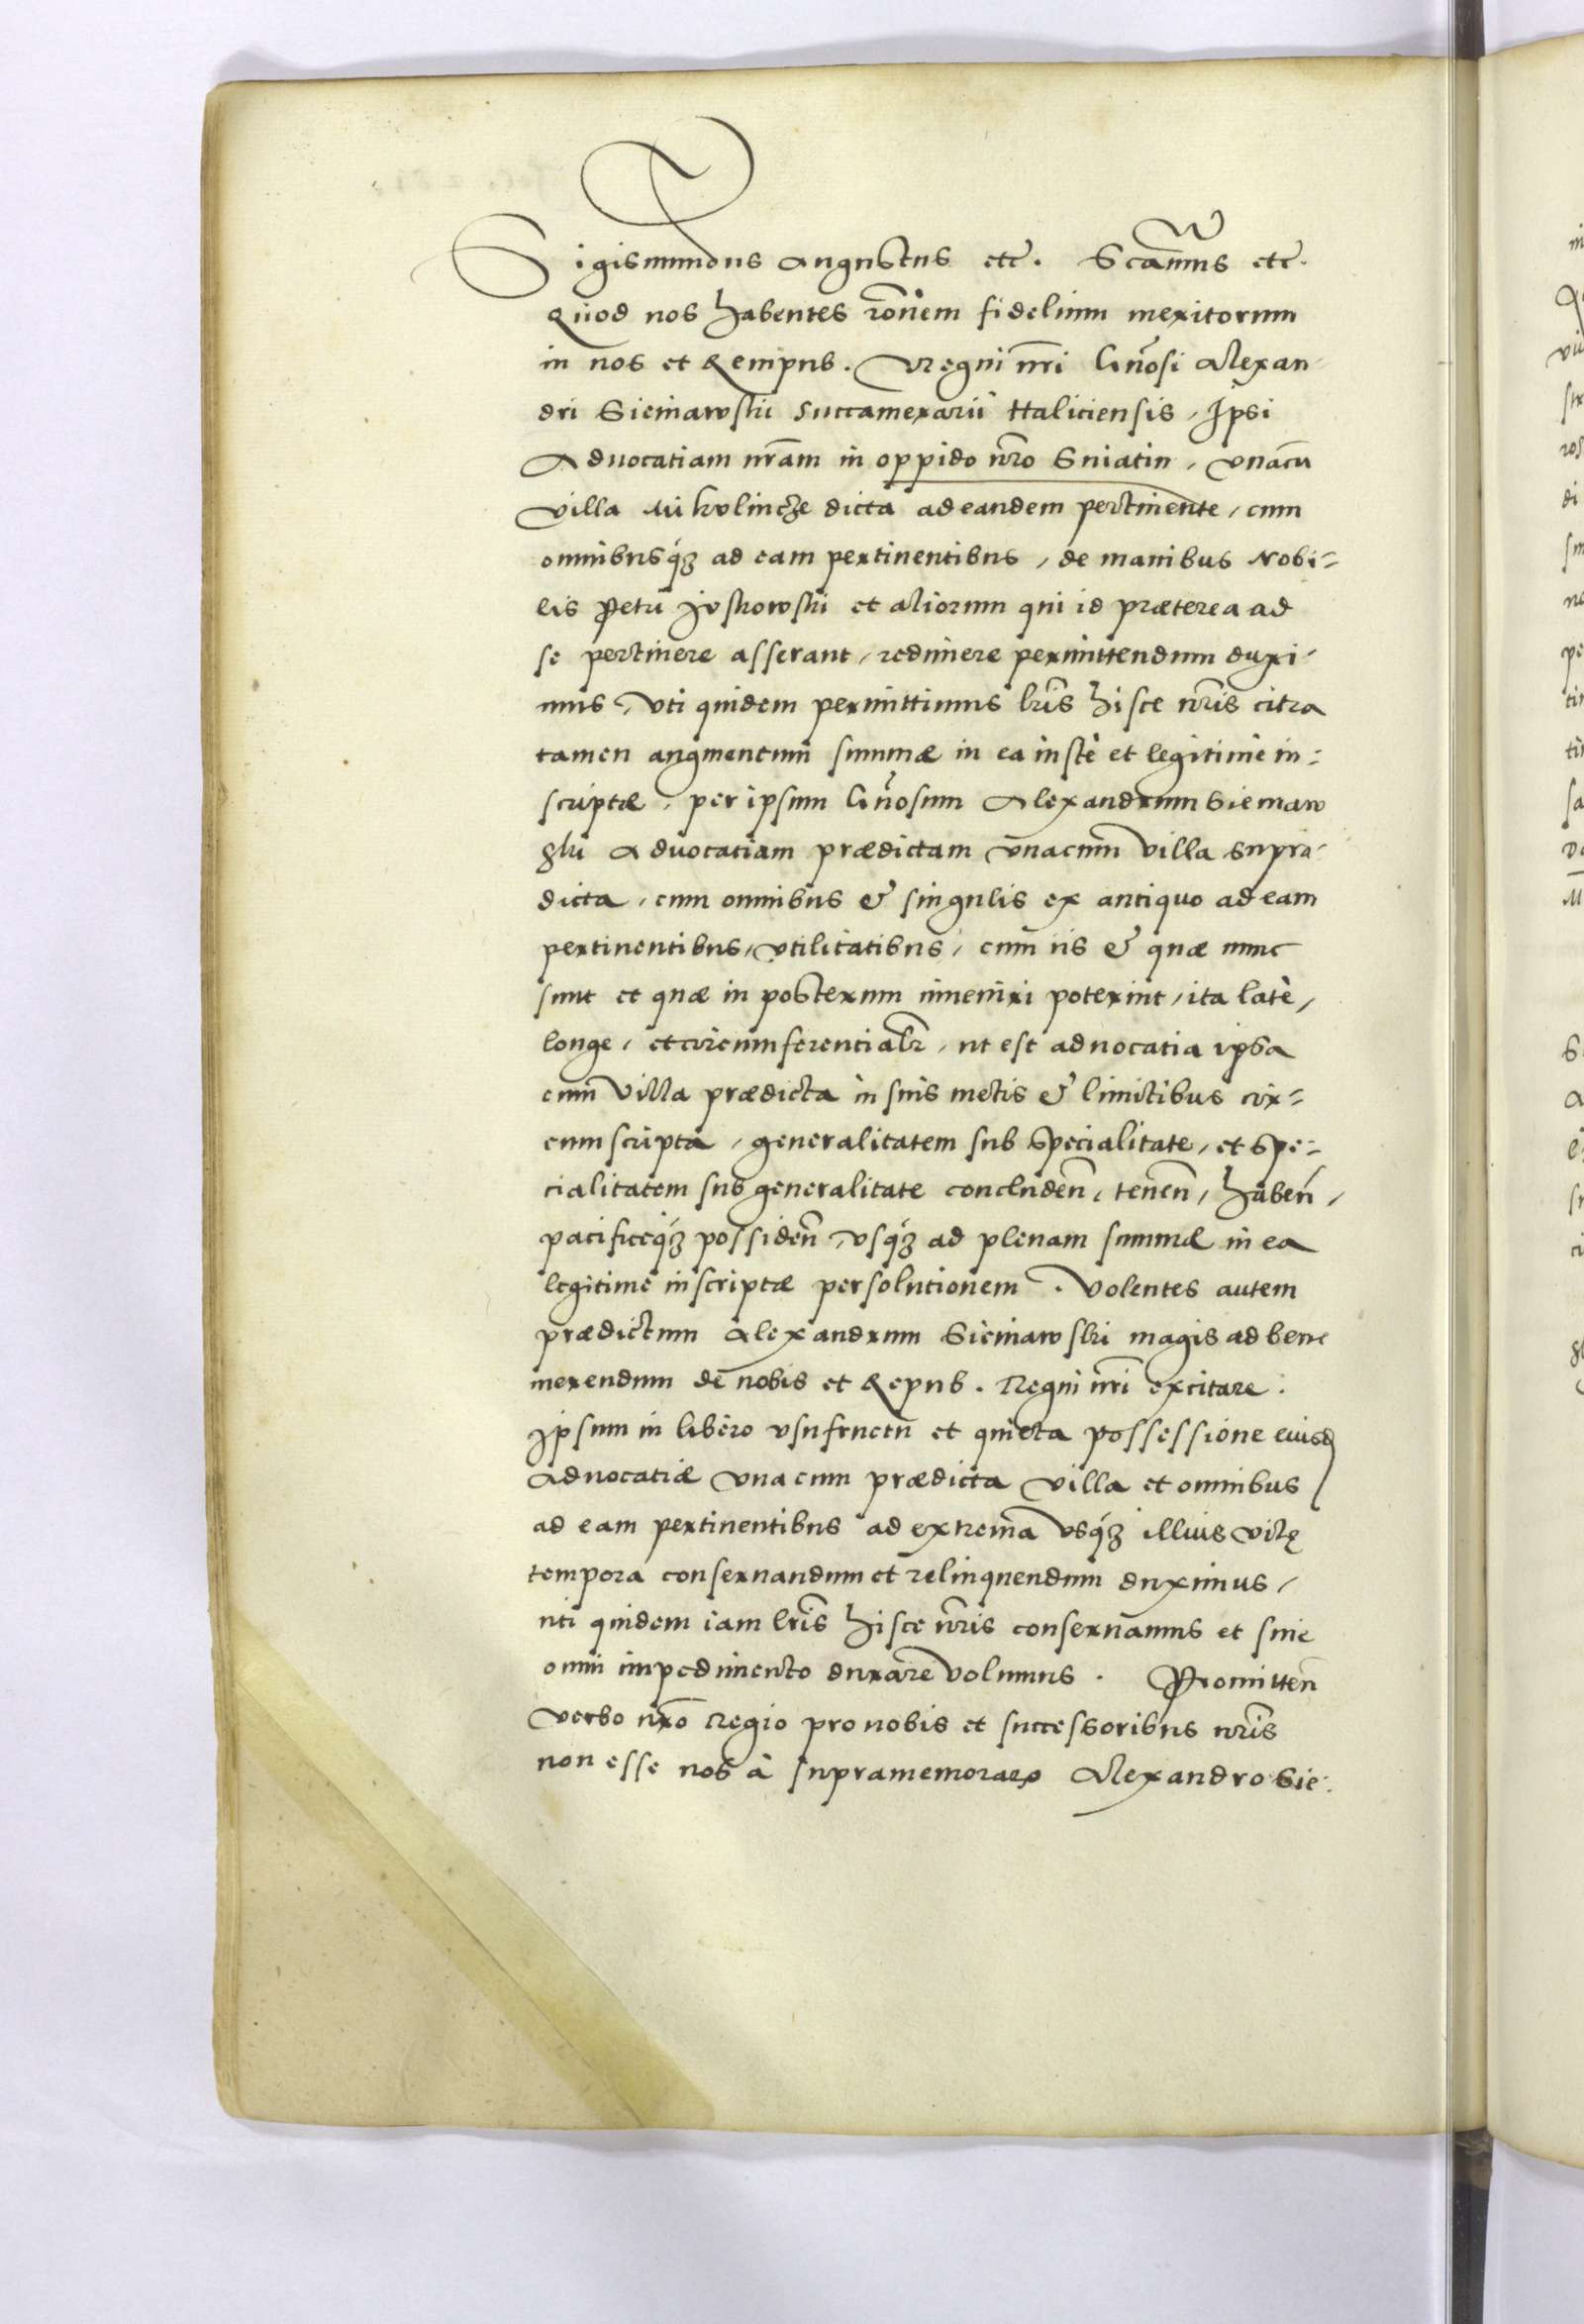 Sigismundus Augustus etc. Scamus etc.
Quod nos habentes rõnem fidelium meritorum
in nos et Rempub. Regni nr̃i Gñosi Alexan-
dri Sieniawskii Succamerarii Haliciensis, Ipsi
Advocatiam nr̃am in oppido nr̃o Sniatin, vnacũ
villa Mikolincze dicta ad eandem pertinente, cum
omnibusq3 ad eam pertinentibus, de manibus Nobi=
lis Petri et aliorum qui id præterea ad
se pertinere asserant, redimere permittendum duxi-
mus, vti quidem permittimus lr̃is hisce nr̃is citra
tamen augmentum summæ in ea iustè et legitimè in=
scriptæ, per ipsum Gñosum Alexandrum Sieniaw
ski Aduocatiam prædictam vnacum villa supra-
dicta, cum omnibus & singulis ex antiquo ad eam
pertinentibus, vtilitatibus, cum iis & quæ nunc
sunt et quæ in posterum inueniri poterint, ita latè,
longe, et circumferentialr̃, ut est aduocatia ipsa
cum villa prædicta in suis metis & limitibus cir=
cumscripta, generalitatem sub specialitate, et spe=
cialitatem sub generalitate concluden̄, tenen̄, haben̄,
pacificeq3 possiden̄, vsq3 ad plenam summæ in ea
legitimè inscriptæ persolutionem. Volentes autem
prædictum Alexandrum Sieniawski magis ad bene
merendum de nobis et Repub. Regni nr̃i excitare.
Ipsum in libero vsufructu et quieta possessione eiusd
Aduocatiæ vna cum prædicta villa et omnibus
ad eam pertinentibus ad extrema vsq3 illius vitę
tempora conseruandum et relinquendum duximus,
uti quidem iam lr̃is hisce nr̃is conseruamus et sine
omni impedimento durare volumus. Promitten̄
verbo nr̃o Regio pro nobis et successoribus nr̃is
non esse nos à supramemorato Alexandro Sie-